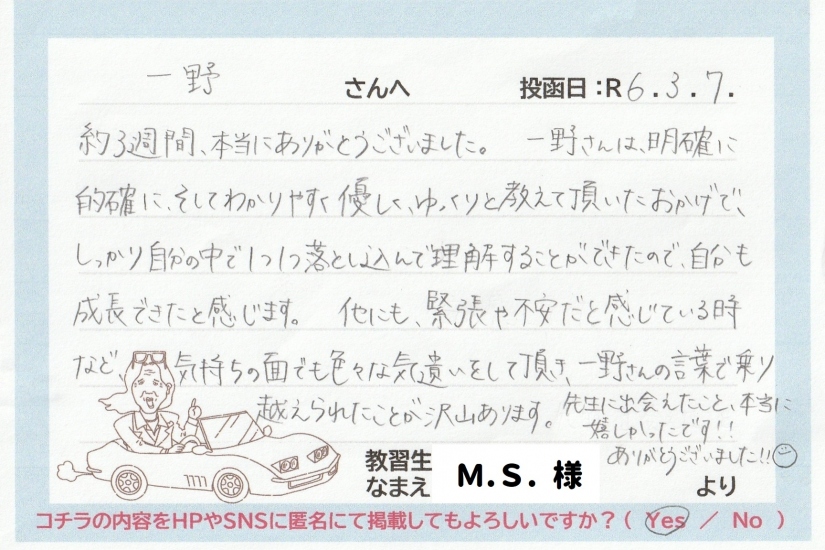 一野 さんへ 投函日:R6.3.7.
約3週間、本当にありがとうございました。 一野さんは、明確に
的確に、そしてわかりやすく優しく、ゆっくりと教えて頂いたおかげで、
しっかり自分の中で1つ1つ落とし込んで理解することができたので、自分も
成長できたと感じます。 他にも、緊張や不安だと感じている時
など、気持ちの面でも色々な気遣いをして頂き、一野さんの言葉で乗り
越えられたことが沢山あります。
先生に出会えたこと、本当に
嬉しかったです!!
ありがとうございました!!
教習生
なまえ M.S. 様 より
コチラの内容をHPやSNSに匿名にて掲載してもよろしいですか?( Yes / No )